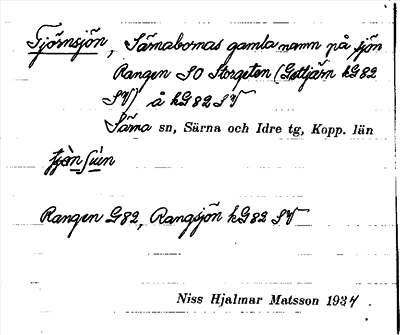 Tjörnsjön, Särnabornas gamla namn på sjön
Rangen SO Storgeten (Gettjärn kG82
SV) å kG82 SV
Särna sn, Särna och Idre tg, Kopp. län
Rangen G82, Rangsjön kG82 SV
Niss Hjalmar Matsson 1934.